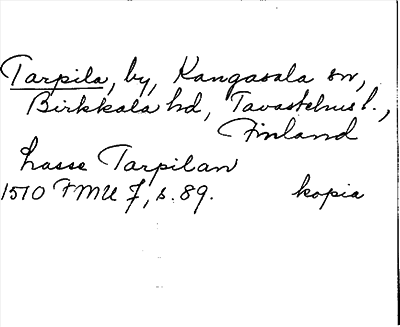 Tarpila, by, Kangasala sn,
Birkkala hd, Tavastehus l.,
Finland
Lasse Tarpilan
1510 FMU 7, s. 89. kopia